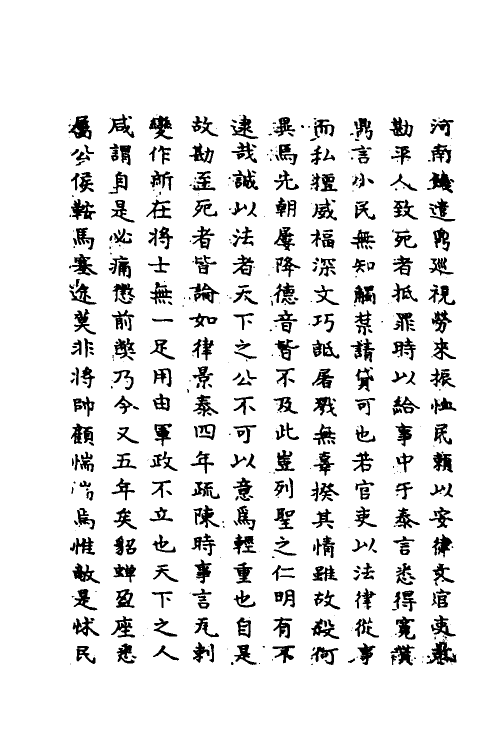 河南饑遣鼎廵視勞來振恤民賴以安律文官吏
勘平人致死者抵罪時以給事中于泰言悉得寛貸
鼎言小民無知觸禁請貸可也若官吏以法律從事
而私擅威福深文巧詆屠戮無辜揆其情雖故殺何
異焉先朝屢降德音皆不及此豈列聖之仁明有不
逮哉誠以法者天下之公不可以意爲輕重也自是
故勘至死者皆論如律景泰四年疏陳時事言尫剌
變作所在將士無一足用由軍政不立也天下之人
咸謂自是必痛懲前弊乃今又五年矣貂蟬盈座悉
屬公侯鞍馬塞途莫非將帥顧惴惴焉惟敵是怵民